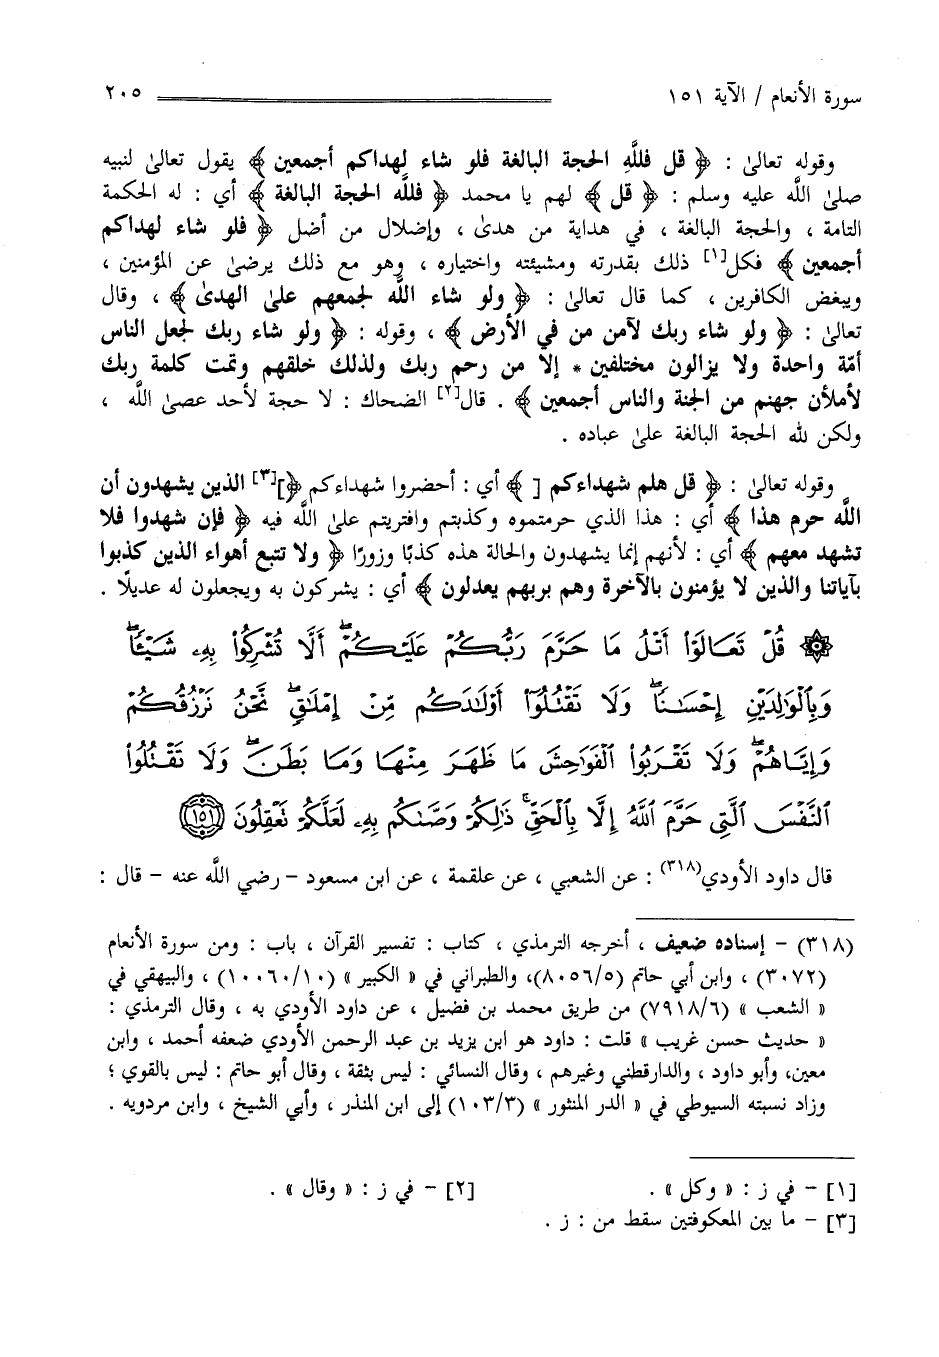 سورة الأنعام / الآية ١٥١ ٢٠٥
وقوله تعالىٰ : ﴿ قل فللَّهِ الحجة البالغة فلو شاء لهداكم أجمعين ﴾ يقول تعالىٰ لنبيه
صلىٰ اللَّه عليه وسلم : ﴿ قل ﴾ لهم يا محمد ﴿ فللَّه الحجة البالغة ﴾ أي : له الحكمة
التامة ، والحجة البالغة ، في هداية من هدىٰ ، وإضلال من أضل ﴿ فلو شاء لهداكم
أجمعين ﴾ فكل[١] ذلك بقدرته ومشيئته واختياره ، وهو مع ذلك يرضىٰ عن المؤمنين ،
ويبغض الكافرين ، كما قال تعالىٰ : ﴿ ولو شاء اللَّه لجمعهم علىٰ الهدىٰ ﴾ ، وقال
تعالىٰ : ﴿ ولو شاء ربك لآمن من في الأرض ﴾ ، وقوله : ﴿ ولو شاء ربك لجعل الناس
أمّة واحدة ولا يزالون مختلفين * إلا من رحم ربك ولذلك خلقهم وتمت كلمة ربك
لأملأن جهنم من الجنة والناس أجمعين ﴾ . قال[٢] الضحاك : لا حجة لأحد عصىٰ اللَّه ،
ولكن لله الحجة البالغة علىٰ عباده .
وقوله تعالىٰ : ﴿ قل هلم شهداءكم [ ﴾ أي : أحضروا شهداءكم ﴿][٣] الذين يشهدون أن
اللَّه حرم هذا ﴾ أي : هذا الذي حرمتموه وكذبتم وافتريتم علىٰ اللَّه فيه ﴿ فإن شهدوا فلا
تشهد معهم ﴾ أي : لأنهم إنما يشهدون والحالة هذه كذبًا وزورًا ﴿ ولا تتبع أهواء الذين كذبوا
بآياتنا والذين لا يؤمنون بالآخرة وهم بربهم يعدلون ﴾ أي : يشركون به ويجعلون له عديلًا .
۞ قُلْ تَعَالَوْا۟ أَتْلُ مَا حَرَّمَ رَبُّكُمْ عَلَيْكُمْ ۖ أَلَّا تُشْرِكُوا۟ بِهِۦ شَيْـًٔا ۖ
وَبِٱلْوَٰلِدَيْنِ إِحْسَـٰنًا ۖ وَلَا تَقْتُلُوٓا۟ أَوْلَـٰدَكُم مِّنْ إِمْلَـٰقٍ ۖ نَّحْنُ نَرْزُقُكُمْ
وَإِيَّاهُمْ ۖ وَلَا تَقْرَبُوا۟ ٱلْفَوَٰحِشَ مَا ظَهَرَ مِنْهَا وَمَا بَطَنَ ۖ وَلَا تَقْتُلُوا۟
ٱلنَّفْسَ ٱلَّتِى حَرَّمَ ٱللَّهُ إِلَّا بِٱلْحَقِّ ۚ ذَٰلِكُمْ وَصَّىٰكُم بِهِۦ لَعَلَّكُمْ تَعْقِلُونَ ١٥١
قال داود الأودي(٣١٨) : عن الشعبي ، عن علقمة ، عن ابن مسعود – رضي اللَّه عنه – قال :
(٣١٨) – إسناده ضعيف ، أخرجه الترمذي ، كتاب : تفسير القرآن ، باب : ومن سورة الأنعام
(٣٠٧٢) ، وابن أبي حاتم (٨٠٥٦/٥)، والطبراني في « الكبير » (١٠٠٦٠/١٠) ، والبيهقي في
« الشعب » (٧٩١٨/٦) من طريق محمد بن فضيل ، عن داود الأودي به ، وقال الترمذي :
« حديث حسن غريب » قلت : داود هو ابن يزيد بن عبد الرحمن الأودي ضعفه أحمد ، وابن
معين، وأبو داود ، والدارقطني وغيرهم ، وقال النسائي : ليس بثقة ، وقال أبو حاتم : ليس بالقوي ؛
وزاد نسبته السيوطي في « الدر المنثور » (١٠٣/٣) إلى ابن المنذر ، وأبي الشيخ ، وابن مردويه .
[١] – في ز : « وكل » . [٢] – في ز : « وقال » .
[٣] – ما بين المعكوفتين سقط من : ز .